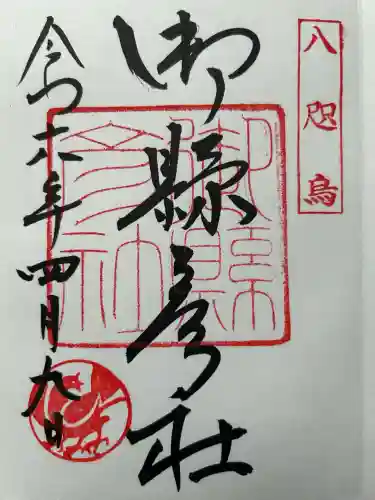 八咫烏
御縣彦社
令和六年四月九日
御縣彦社